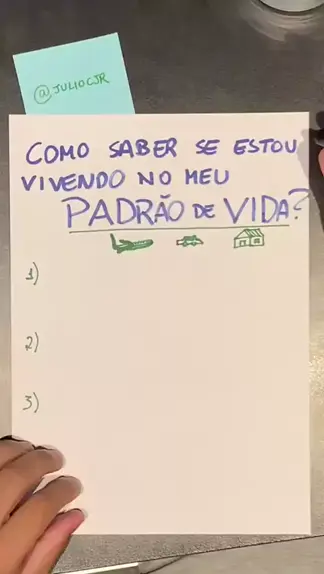 @JULIOCJR
COMO SABER SE ESTOU
VIVENDO NO MEU
PADRÃO DE VIDA?
1)
2)
3)